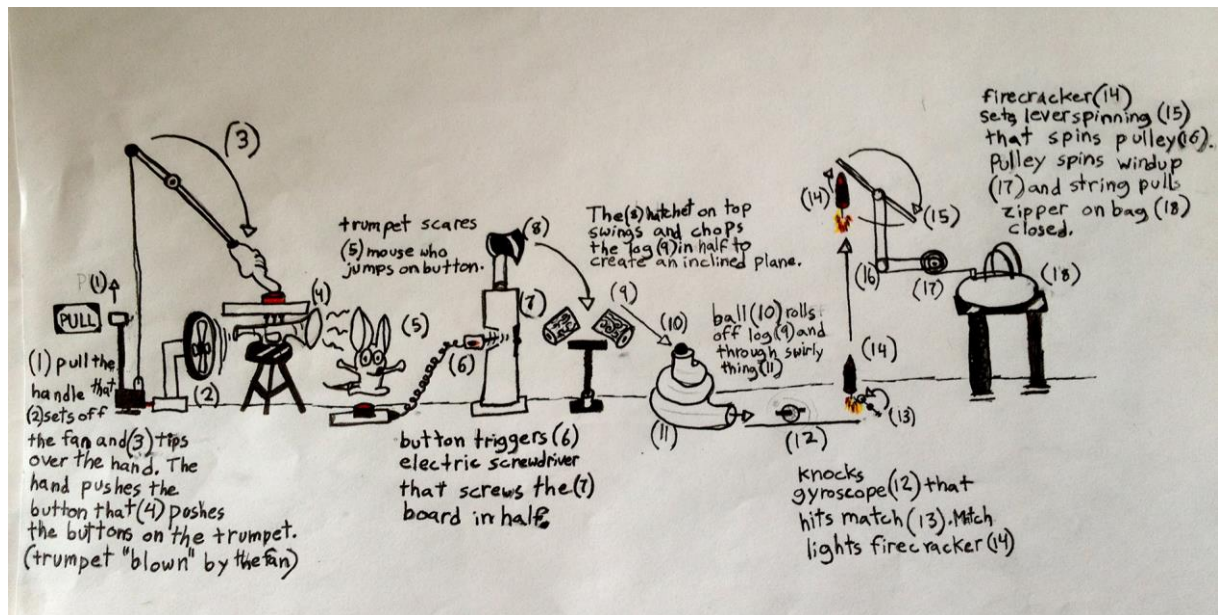 (1)
PULL
(1) pull the
handle that
(2) sets off
the fan and (3) tips
over the hand. The
hand pushes the
button that (4) poshes
the buttons on the trumpet.
(trumpet "blown" by the fan)
(2)
(3)
(4)
trumpet scares
(5) mouse who
jumps on button.
(5)
(6)
(7)
(8)
button triggers (6)
electric screwdriver
that screws the (7)
board in half.
The (8) hatchet on top
swings and chops
the log (9) in half to
create an inclined plane.
(9)
(10)
(11)
ball (10) rolls
off log (9) and
through swirly
thing (11)
(12)
(13)
(14)
(14)
knocks
gyroscope (12) that
hits match (13). Match
lights firecracker (14)
(15)
(16)
(17)
(18)
firecracker (14)
sets lever spinning (15)
that spins pulley (16).
Pulley spins windup
(17) and string pulls
zipper on bag (18)
closed.